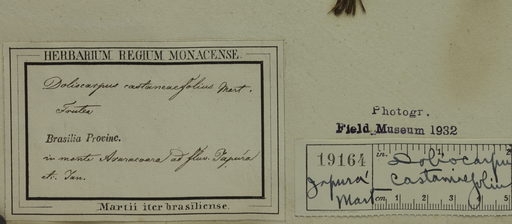 HERBARIUM REGIUM MONACENSE.
Doliocarpus castaneaefolius Mart.
Frutex
Brasilia Provinc.
in monte Araracoara ad fluv. Japurá
Jan.
Martii iter brasiliense.
Photogr.
Field Museum 1932
19164
in. 1 2
Doliocarpus
castaniefoliu
Japurá
Mart
cm. 1 2 3 4 5